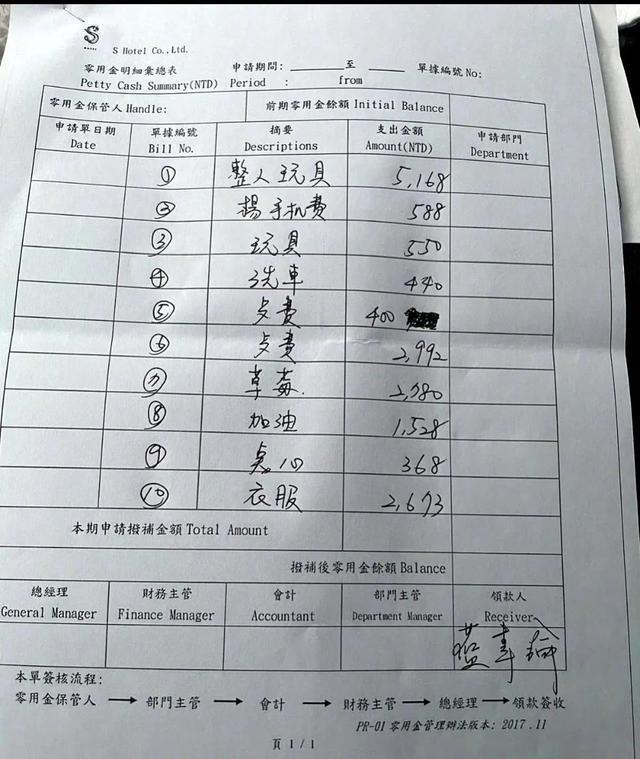 S
S Hotel Co.,Ltd.
零用金明細彙總表 申請期間: ______ 至 ______ 單據編號 No:
Petty Cash Summary(NTD) Period : from
零用金保管人 Handle: 前期零用金餘額 Initial Balance
申請單日期 單據編號 摘要 支出金額 申請部門
Date Bill No. Descriptions Amount(NTD) Department
① 整人玩具 5,168
② 楊手机費 588
③ 玩具 550
④ 洗車 440
⑤ 夕費 400
⑥ 夕費 2,992
⑦ 草莓 2,780
⑧ 加油 1,528
⑨ 点心 368
⑩ 衣服 2,673
本期申請撥補金額 Total Amount
撥補後零用金餘額 Balance
總經理 財務主管 會計 部門主管 領款人
General Manager Finance Manager Accountant Department Manager Receiver
本單簽核流程:
零用金保管人 → 部門主管 → 會計 → 財務主管 → 總經理 → 領款簽收
PR-01 零用金管理辦法版本: 2017.11
頁 1 / 1